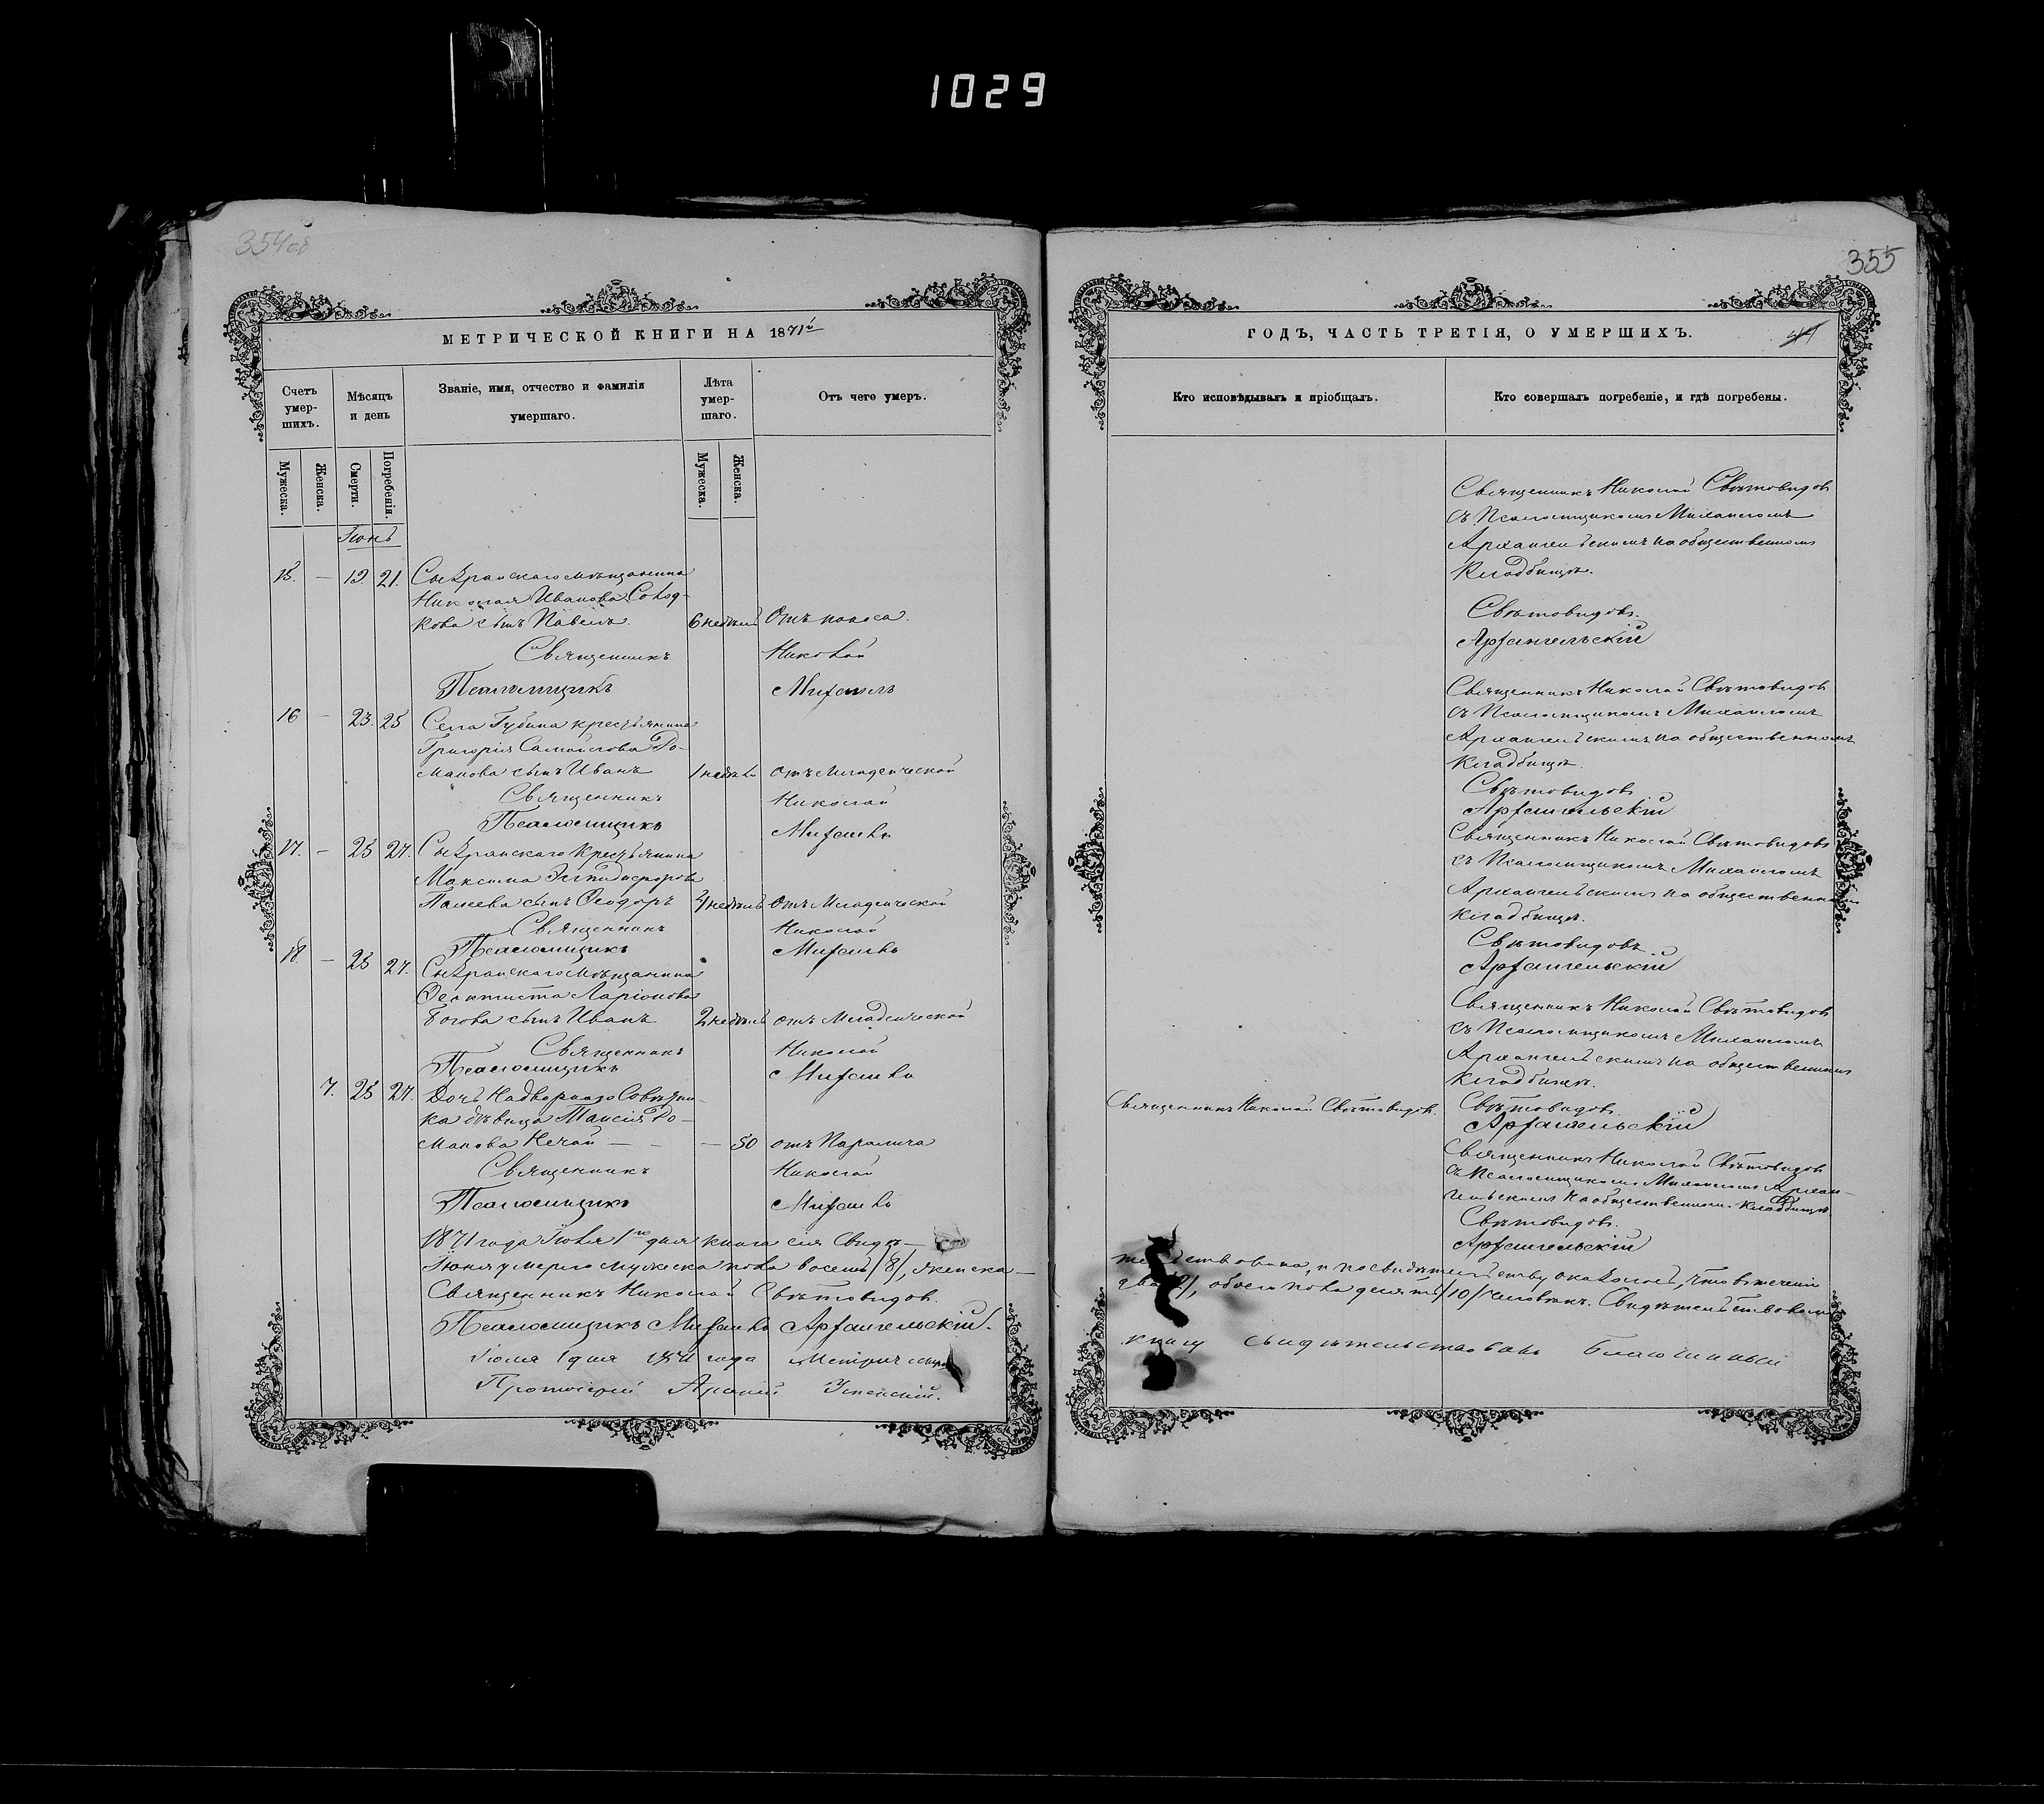 1029
354 об
МЕТРИЧЕСКОЙ КНИГИ НА 1871й
Счетъ умер-шихъ.
Мѣсяцъ и день
Званіе, имя, отчество и фамилія умершаго.
Лѣта умер-шаго.
Отъ чего умеръ.
Мужеска.
Женска.
Смерти.
Погребенія.
Мужеска.
Женска.
Іюнь
15. — 19 21. Сызранскаго мѣщанина
Николая Иванова
кова сынъ Павелъ. 6 недѣль Отъ поноса.
Священникъ Николай
Псаломщикъ Михаилъ
16 — 23. 25 Села Губина крестьянина
Григорія Самойлова Ро-
манова сынъ Иванъ 1 недѣли отъ младенческой
Священникъ Николай
Псаломщикъ Михаилъ
17. — 25 27. Сызранскаго крестьянина
Максима
сынъ Ѳеодоръ недѣль отъ младенческой
Священникъ Николай
Псаломщикъ Михаилъ
18. — 25 27. Сызранскаго мѣщанина
Ларіонова
сынъ Иванъ 2 недѣль отъ младенческой
Священникъ Николай
Псаломщикъ Михаилъ
7. 25 27. Дочь Надворнаго Совѣтни-
ка дѣвица Таисія Ро-
манова Нечай — — — 50 отъ паралича
Священникъ Николай
Псаломщикъ Михаилъ
1871 года Іюля 1го дня книга сія свидѣ-
Іюня умерло мужеска пола восемь /8/, женска —
Священникъ Николай Свѣтовидовъ.
Псаломщикъ Михаилъ Архангельскій.
Іюля 1 дня 1871 года
Протоіерей Успенскій.
355
ГОДЪ, ЧАСТЬ ТРЕТІЯ, О УМЕРШИХЪ.
Кто исповѣдывалъ и пріобщалъ.
Кто совершалъ погребеніе, и гдѣ погребены.
Священникъ Николай Свѣтовидовъ
съ Псаломщикомъ Михаиломъ
Архангельскимъ на общественномъ
кладбищѣ.
Свѣтовидовъ.
Архангельскій
Священникъ Николай Свѣтовидовъ
съ Псаломщикомъ Михаиломъ
Архангельскимъ на общественномъ
кладбищѣ.
Свѣтовидовъ
Архангельскій
Священникъ Николай Свѣтовидовъ
съ Псаломщикомъ Михаиломъ
Архангельскимъ на общественномъ
кладбищѣ.
Свѣтовидовъ
Архангельскій
Священникъ Николай Свѣтовидовъ
съ Псаломщикомъ Михаиломъ
Архангельскимъ на общественномъ
кладбищѣ.
Свѣтовидовъ.
Архангельскій
Священникъ Николай Свѣтовидовъ.
Священникъ Николай Свѣтовидовъ
съ Псаломщикомъ Михаиломъ Архан-
гельскимъ на общественномъ кладбищѣ
Свѣтовидовъ.
Архангельскій
тельствована, и по свидѣтельству оказалось, что въ теченіи
два /2/, обоего пола десять /10/ человѣкъ. Свидѣтельствовали
книгу свидѣтельствовалъ Благочинный